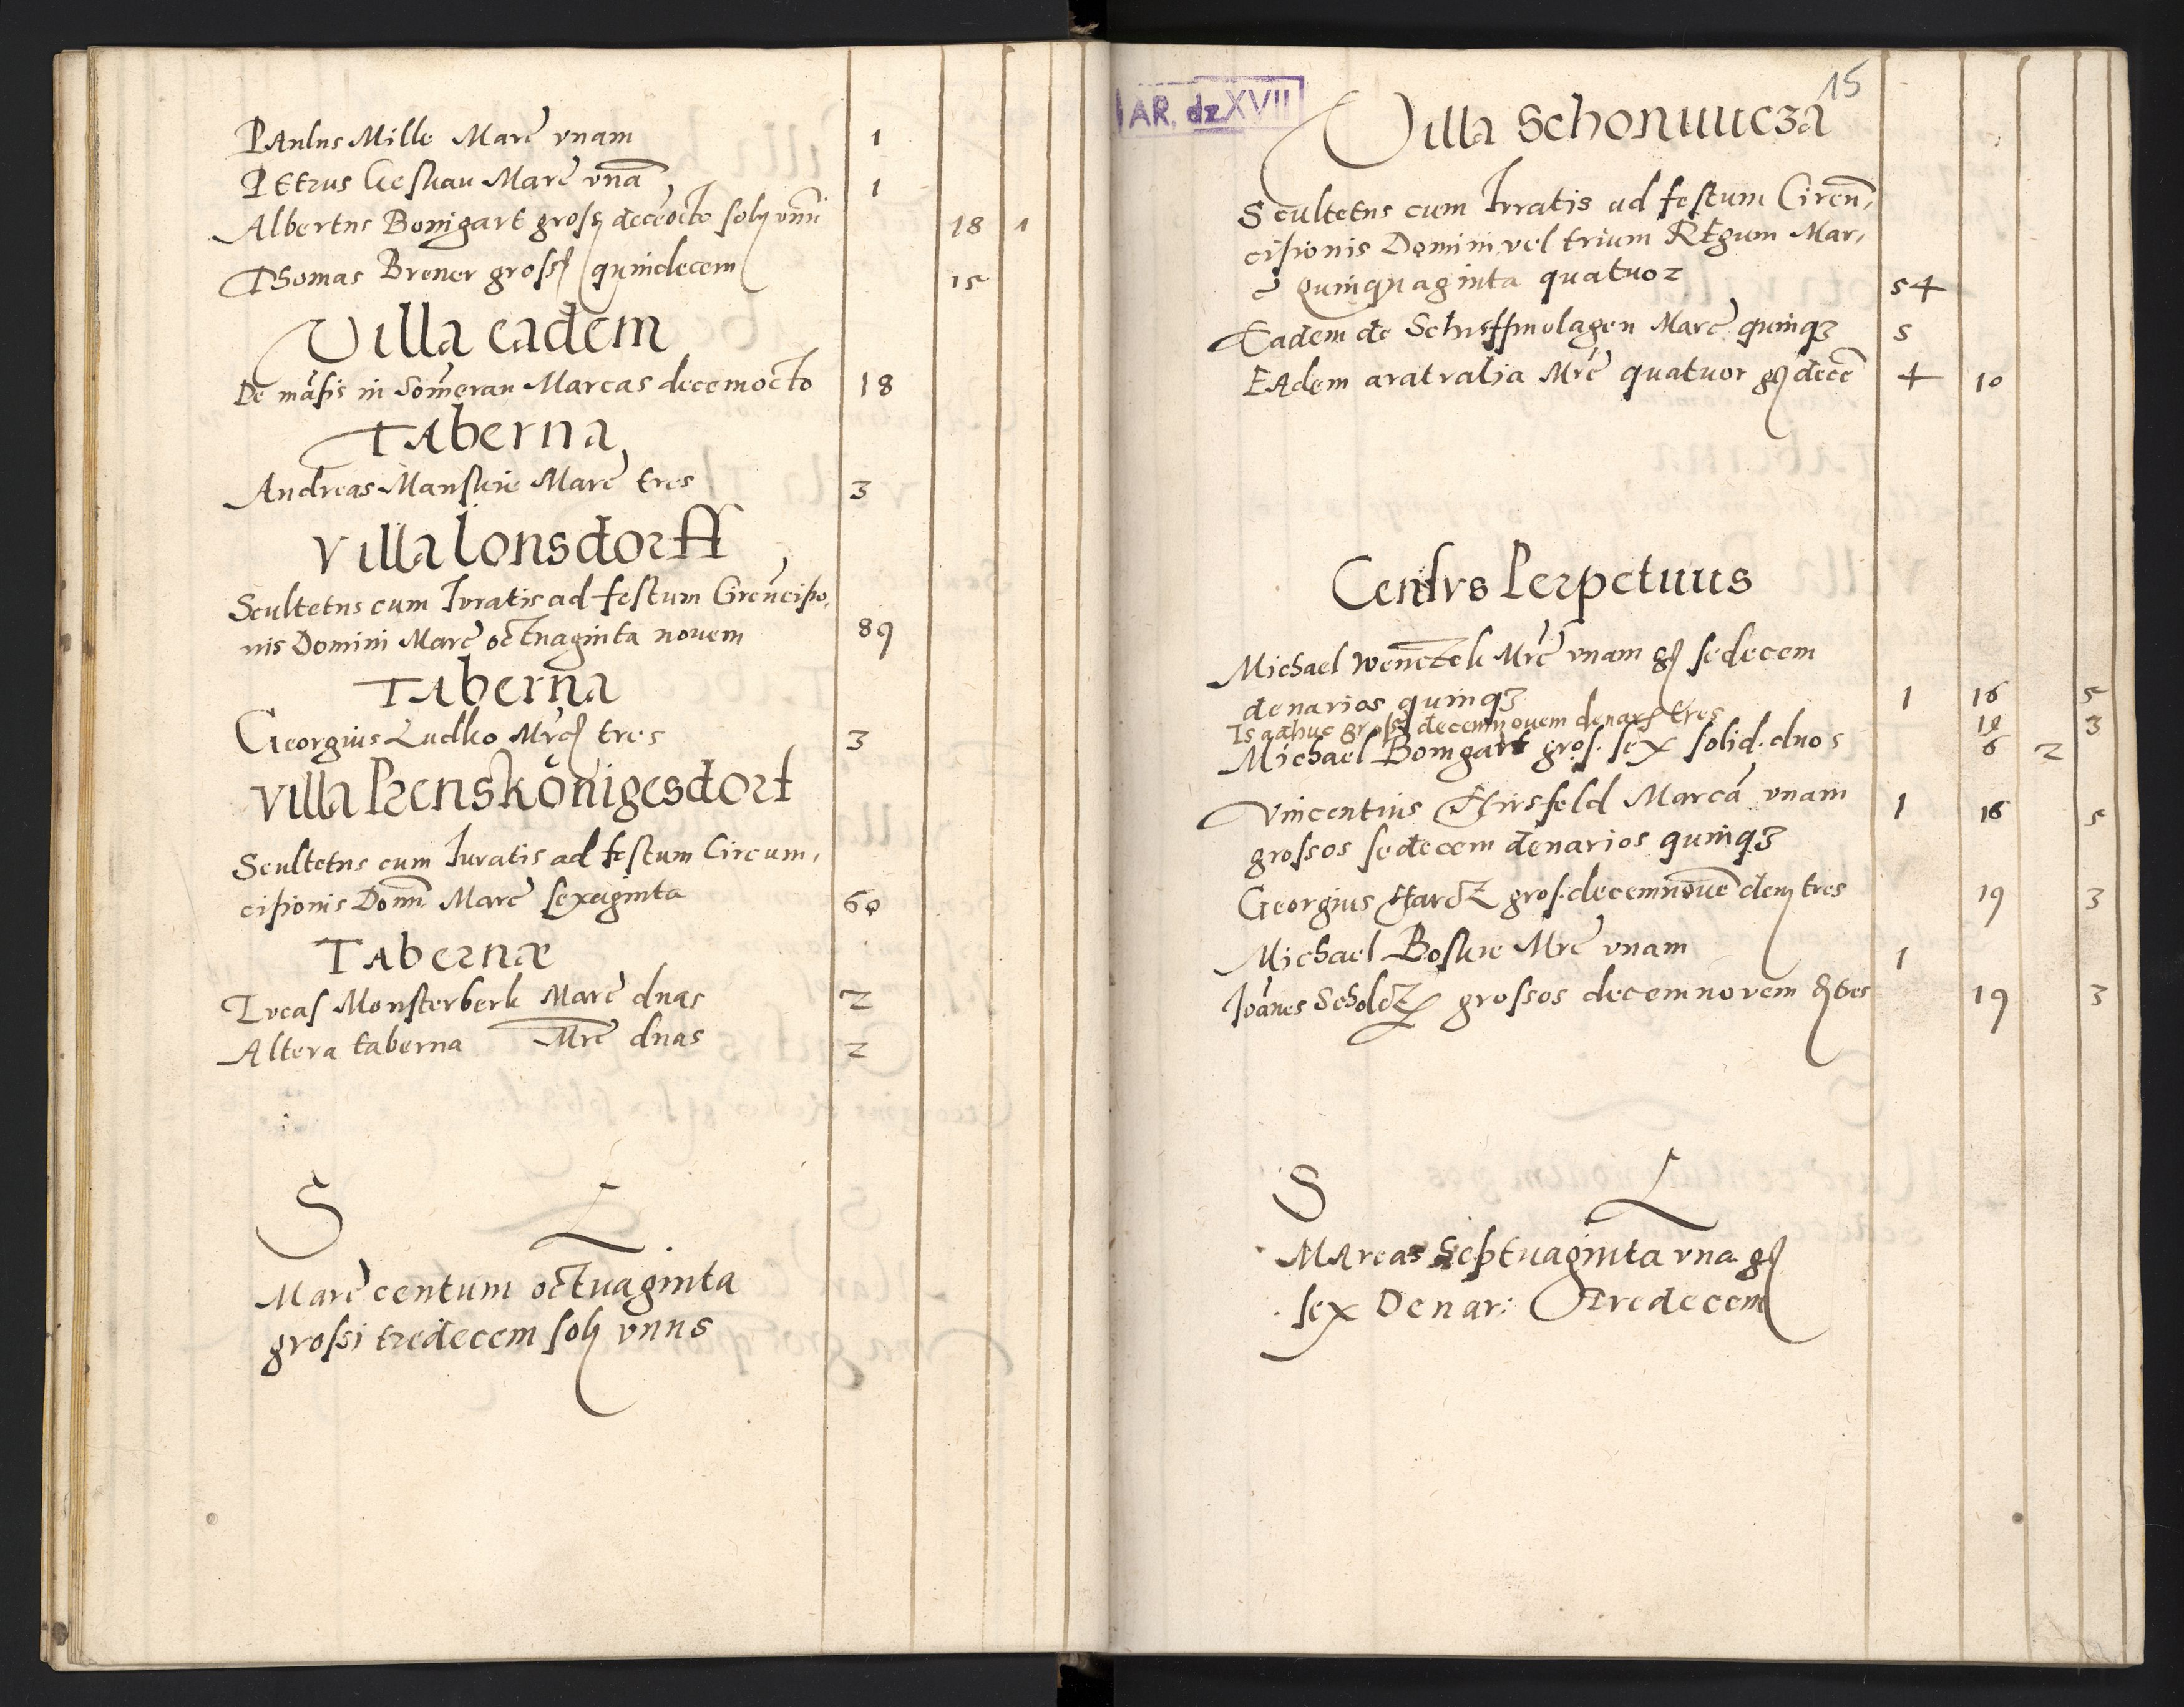 PAulus Mille Marc̃ vnam 1
PEtrus Keskau Marc̃ vnã 1
Albertus Bomgart gross decẽocto soly vnũ 18 1
Thomas Brener gross quindecem 15
Villa eadem
De mãsis in Som̃eran Marcas decemocto 18
TAberna
Andreas Manskie Marc̃ tres 3
Villa Lonsdorff
Scultetus cum Iuratis ad festum Circũcisio,
nis Domini Marc̃ octuaginta novem 89
TAberna
Georgius Ludko Mrc̃ tres 3
Villa Prenskönigesdorf
Scultetus cum Iuratis ad festum Circum,
cisionis Domĩ Marc̃ sexaginta 60
TAbernæ
Lucas Monsterberk Marc̃ duas 2
Altera taberna Mrc̃ duas 2
S L
Marc̃ centum octuaginta
grossi tredecem soly vnus
AR. dz XVII
15
Villa Schonuucza
Scultetus cum Iuratis ad festum Circũ,
cisionis Domini vel trium REgum Mar,
c̃ Quinquaginta quatuor 54
Eadem de Marc̃ quinqȝ 5
EAdem aratralia Mrc̃ quatuor g decẽ 4 10
Censvs Perpetuus
Michael Wenctzk Mrc̃ vnam g sedecem
denarios quinqȝ 1 16 5
Is adhuc gross decemnovem denar tres 19 3
Michael Bomgart gros. sex solid. duos 6 2
Vincentius Hirsfeld Marcã vnam 1 16 5
grossos sedecem denarios quinqȝ
Georgius Hartz gros. decemnouẽ den tres 19 3
Michael Boskie Mrc̃ vnam 1
Ioãnes Scholtz grossos decemnovem d tres 19 3
S L
MArcas Septuaginta vna g
sex Denar: Tredecem